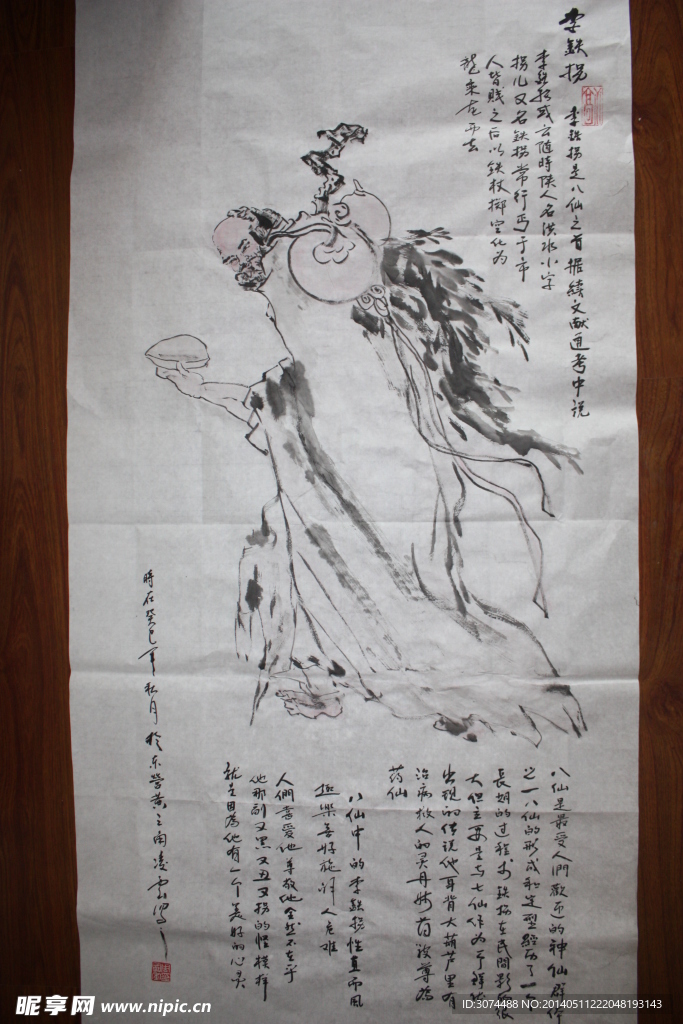 李鉄拐
李鉄拐是八仙之首据續文献通考中说
李鉄拐或云随時陕人名洪水小字
拐儿又名鉄拐常行丐于市
人皆贱之后以鉄杖掷空化为
龍乘龙而去
八仙是最受人們歡迎的神仙群体
之一八仙的形成和定型經历了一个
長期的过程李鉄拐在民間影响很
大但主要是与七仙作为
出現的传说他耳背大葫芦里有
治病救人的灵丹妙药被尊為
药仙
八仙中的李鉄拐性直而風
趣樂善好施济人危难
人們喜爱他尊敬他全然不在乎
他那副又黑又丑又拐的怪模样
就是因為他有一个美好的心灵
時在癸巳年秋月於东營黄之南凌雲
昵享网 www.nipic.cn
ID:3074488 NO:20140511222048193143